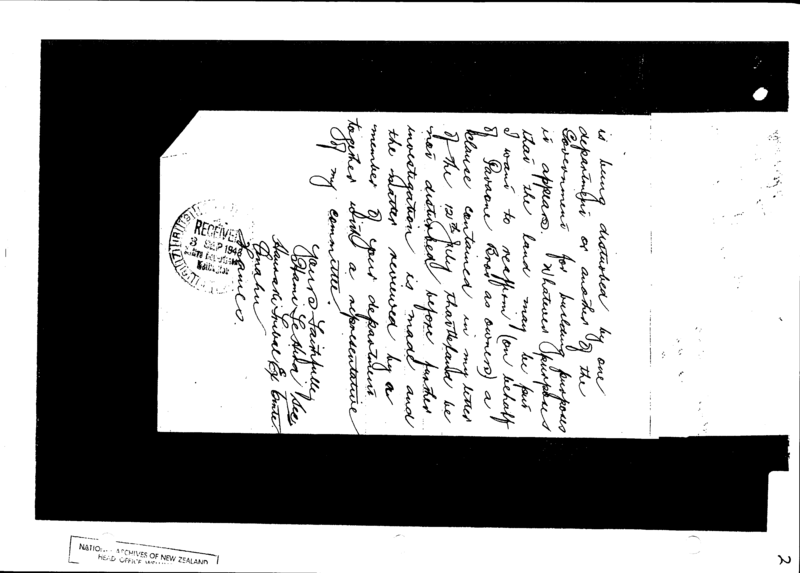 is being disturbed by one
department or another of the
Government for building purposes
it appears. Whatever purposes
that the land may be put
I want to reaffirm (on behalf
of Bros as owners) a
clause contained in my letter
of the 12th July that the land be
not disturbed before further
investigation is made and
the matter reviewed by a
member of your department
together with a representative
of my committee.
Yours faithfully
Sec
Hauraki Tribal Ex Cmtee
Thames.
RECEIVED
3 SEP 1948
NATIONAL ARCHIVES OF NEW ZEALAND
HEAD OFFICE
2